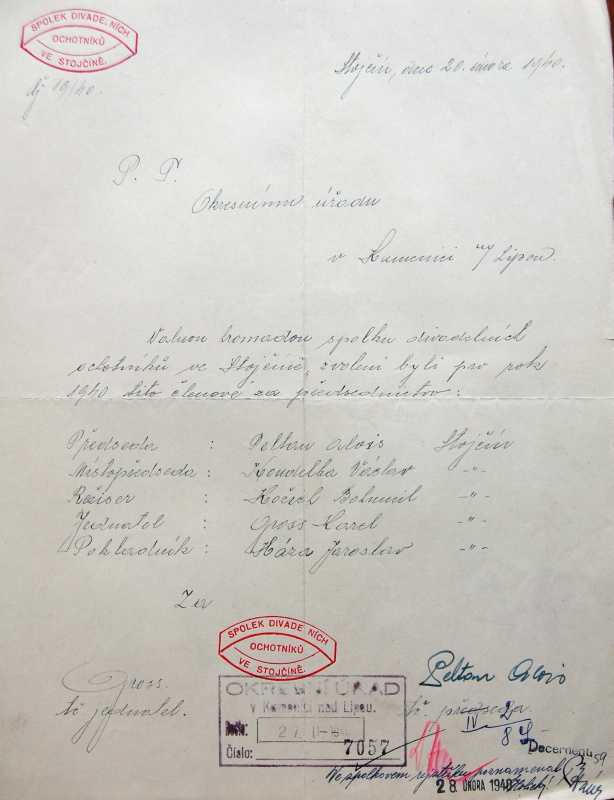 SPOLEK DIVADE.NÍCH
OCHOTNÍKŮ
VE STOJČÍNĚ.
Stojčín, dne 20. února 1940.
čj 19/40.
P. T.
Okresnímu úřadu
v Kamenici n/Lipou.
Valnou hromadou spolku divadelních
ochotníků ve Stojčíně, zvoleni byli pro rok
1940 tito členové za předsednictvo:
Předseda : Peltan Alois Stojčín
Místopředseda: Koudelka Václav -"-
Režiser : Kožich Bohumil -"-
Jednatel : Gross Karel -"-
Pokladník : Háza Jaroslav -"-
Za
SPOLEK DIVADE.NÍCH
OCHOTNÍKŮ
VE STOJČÍNĚ.
Gross.
tč jednatel.
Peltan Alois
tč předseda.
OKRESNÍ ÚŘAD
v Kamenici nad Lipou.
Došlo: 27. II. 1940
Číslo: 7057
IV 2
84
Decernent: 59
Ve spolkovém rejstříku poznamenal
28. ÚNORA 1940